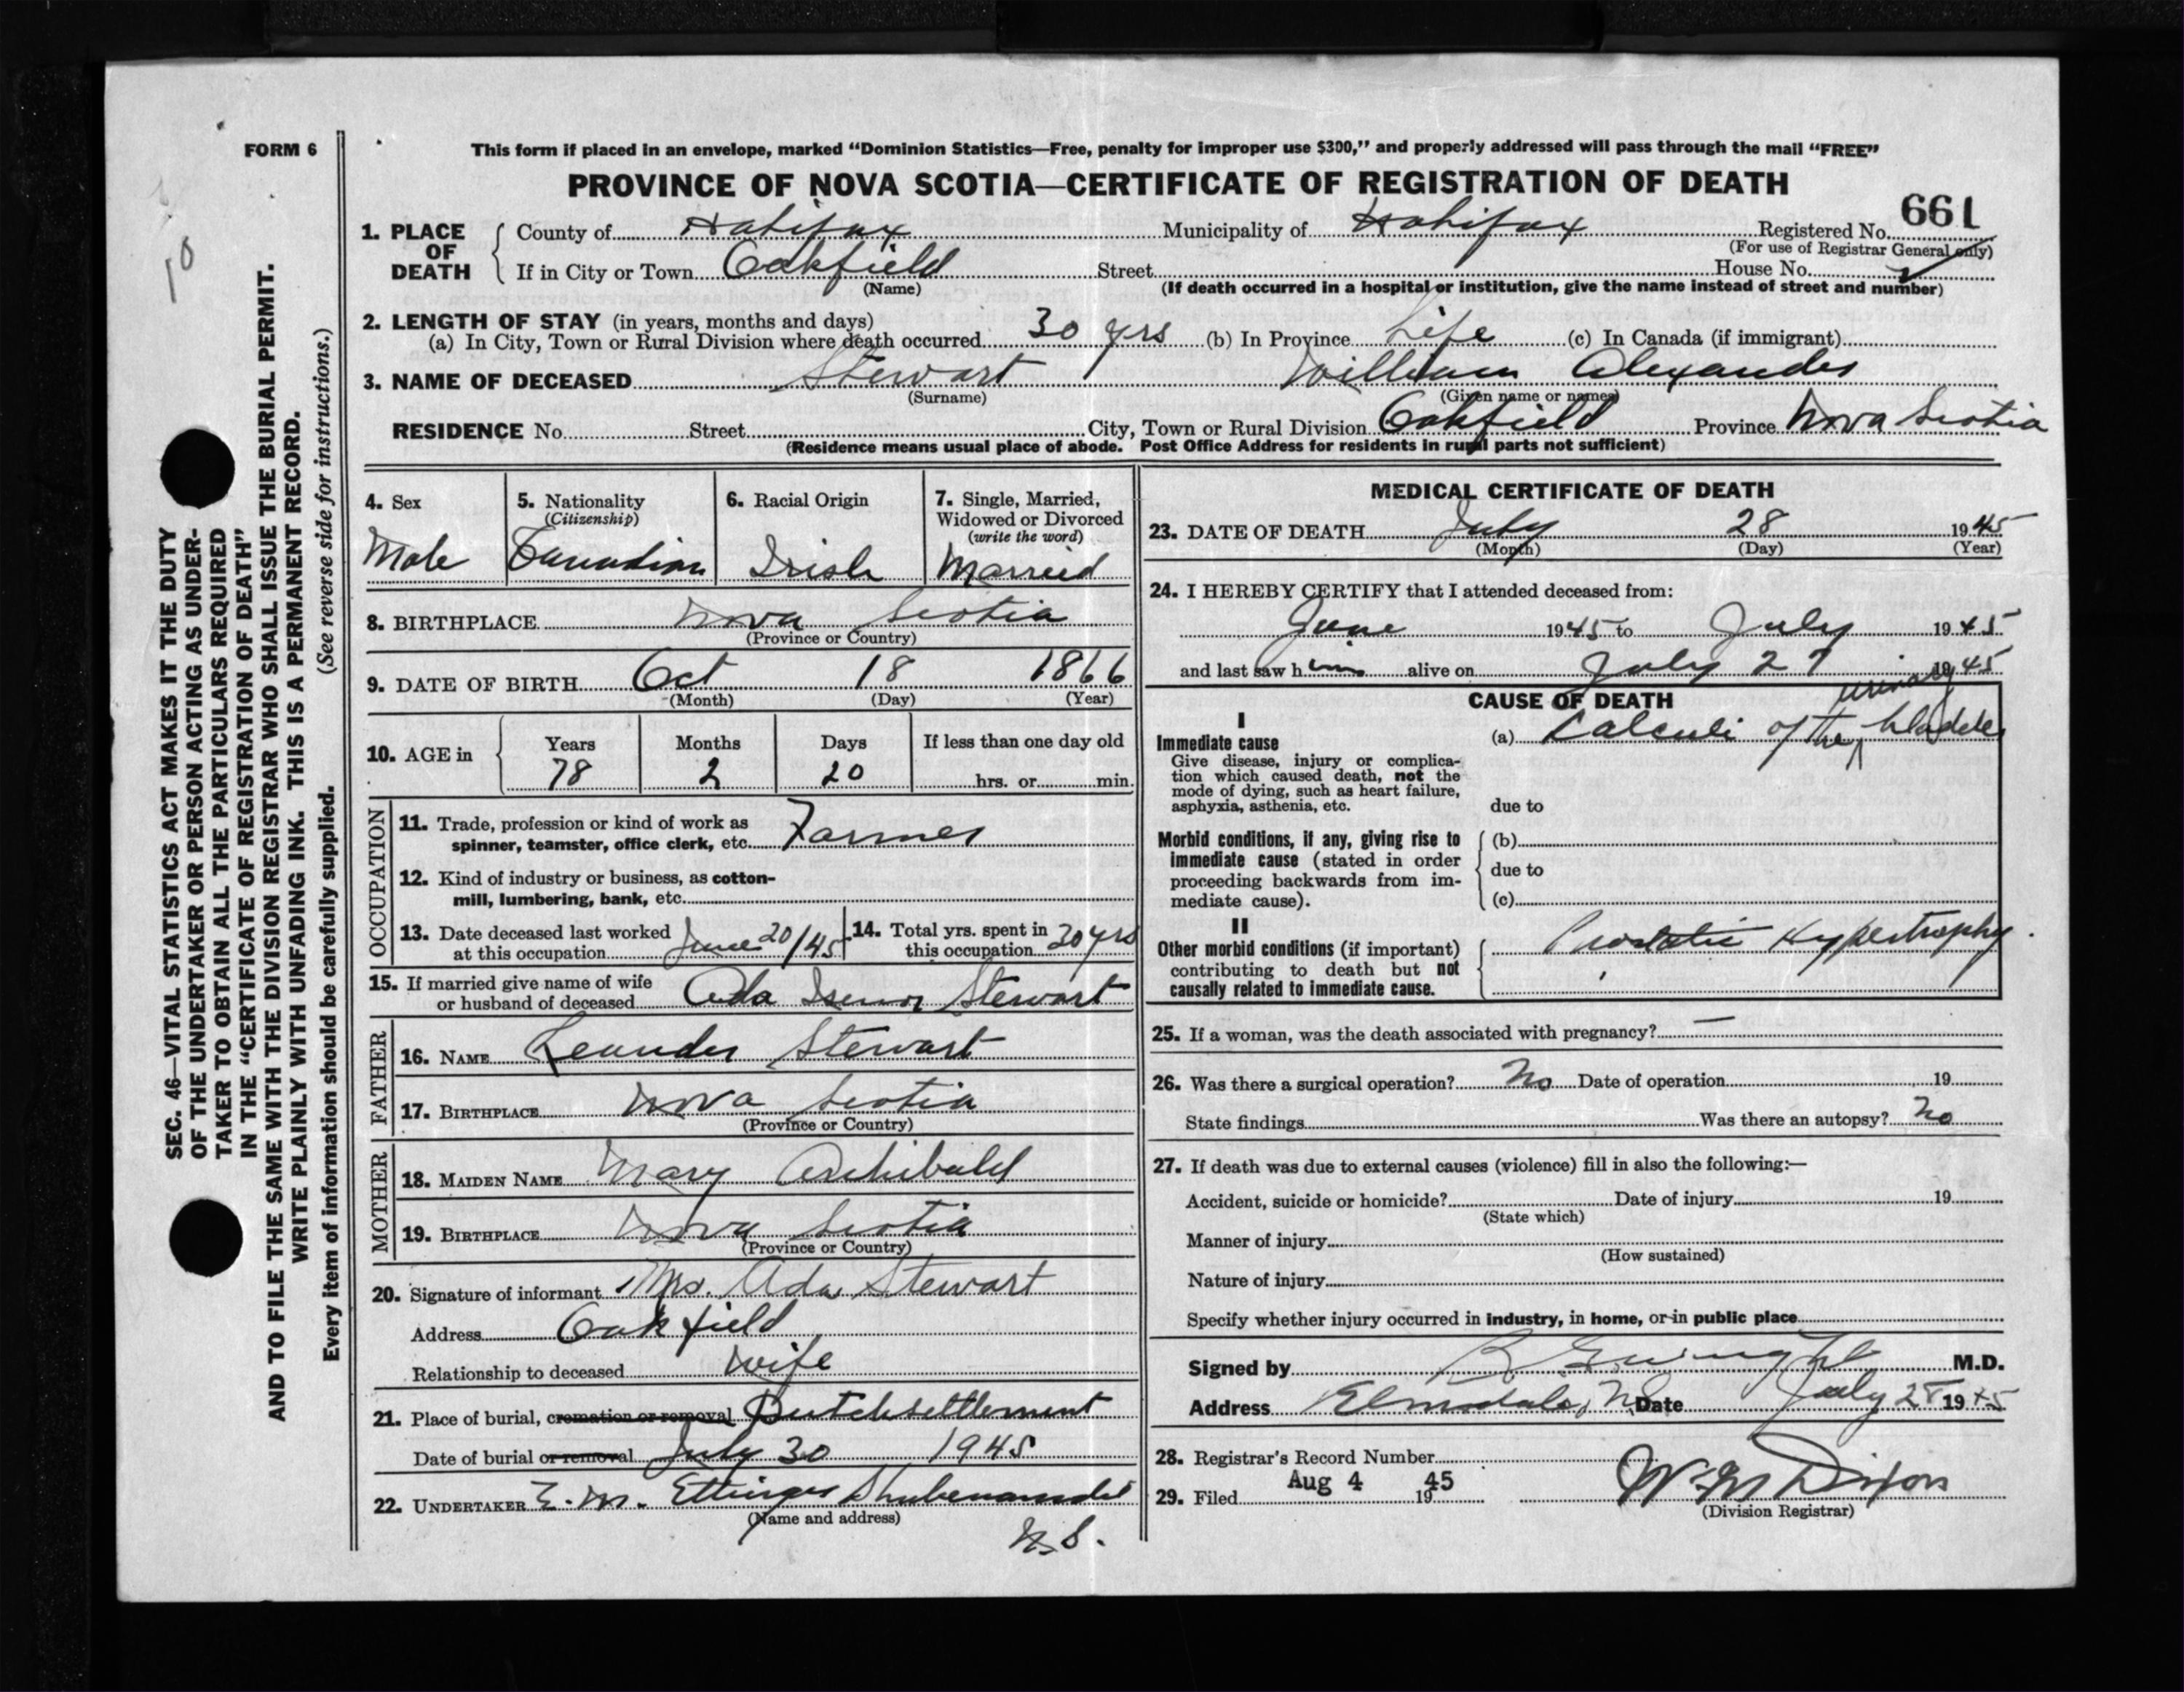 FORM 6
This form if placed in an envelope, marked “Dominion Statistics—Free, penalty for improper use $300,” and properly addressed will pass through the mail “FREE”
PROVINCE OF NOVA SCOTIA—CERTIFICATE OF REGISTRATION OF DEATH
661
1. PLACE OF DEATH County of Halifax Municipality of Halifax Registered No.
(For use of Registrar General only)
If in City or Town Oakfield Street House No.
(Name) (If death occurred in a hospital or institution, give the name instead of street and number)
2. LENGTH OF STAY (in years, months and days)
(a) In City, Town or Rural Division where death occurred 30 yrs (b) In Province Life (c) In Canada (if immigrant)
3. NAME OF DECEASED Stewart William Alexander
(Surname) (Given name or names)
RESIDENCE No. Street City, Town or Rural Division Oakfield Province Nova Scotia
(Residence means usual place of abode. Post Office Address for residents in rural parts not sufficient)
4. Sex
Male
5. Nationality
(Citizenship)
Canadian
6. Racial Origin
Irish
7. Single, Married,
Widowed or Divorced
(write the word)
Married
8. BIRTHPLACE Nova Scotia
(Province or Country)
9. DATE OF BIRTH Oct 18 1866
(Month) (Day) (Year)
10. AGE in Years Months Days If less than one day old
78 2 20 hrs. or min.
OCCUPATION
11. Trade, profession or kind of work as
spinner, teamster, office clerk, etc. Farmer
12. Kind of industry or business, as cotton-
mill, lumbering, bank, etc.
13. Date deceased last worked
at this occupation June 20/45
14. Total yrs. spent in
this occupation 30 yrs
15. If married give name of wife
or husband of deceased Ada Isenor Stewart
FATHER
16. NAME Leander Stewart
17. BIRTHPLACE Nova Scotia
(Province or Country)
MOTHER
18. MAIDEN NAME Mary Archibald
19. BIRTHPLACE Nova Scotia
(Province or Country)
20. Signature of informant Mrs. Ada Stewart
Address Oakfield
Relationship to deceased wife
21. Place of burial, cremation or removal Dutchsettlement
Date of burial or removal July 30 1945
22. UNDERTAKER E. M. Ettinger Shubenacadie
(Name and address)
N.S.
MEDICAL CERTIFICATE OF DEATH
23. DATE OF DEATH July 28 1945
(Month) (Day) (Year)
24. I HEREBY CERTIFY that I attended deceased from:
June 1945 to July 1945
and last saw him alive on July 27 1945
CAUSE OF DEATH
I
Immediate cause
Give disease, injury or complica-
tion which caused death, not the
mode of dying, such as heart failure,
asphyxia, asthenia, etc.
urinary
(a) Calculi of the bladder
due to
Morbid conditions, if any, giving rise to
immediate cause (stated in order
proceeding backwards from im-
mediate cause).
(b)
due to
(c)
II
Other morbid conditions (if important)
contributing to death but not
causally related to immediate cause.
Prostatic Hypertrophy.
25. If a woman, was the death associated with pregnancy? —
26. Was there a surgical operation? No Date of operation 19
State findings Was there an autopsy? No
27. If death was due to external causes (violence) fill in also the following:—
Accident, suicide or homicide? Date of injury 19
(State which)
Manner of injury
(How sustained)
Nature of injury
Specify whether injury occurred in industry, in home, or in public place
Signed by M.D.
Address Elmsdale, N.S. Date July 28 1945
28. Registrar's Record Number
29. Filed Aug 4 1945 W. M. Dixon
(Division Registrar)
SEC. 46—VITAL STATISTICS ACT MAKES IT THE DUTY
OF THE UNDERTAKER OR PERSON ACTING AS UNDER-
TAKER TO OBTAIN ALL THE PARTICULARS REQUIRED
IN THE “CERTIFICATE OF REGISTRATION OF DEATH”
AND TO FILE THE SAME WITH THE DIVISION REGISTRAR WHO SHALL ISSUE THE BURIAL PERMIT.
WRITE PLAINLY WITH UNFADING INK. THIS IS A PERMANENT RECORD.
Every item of information should be carefully supplied. (See reverse side for instructions.)